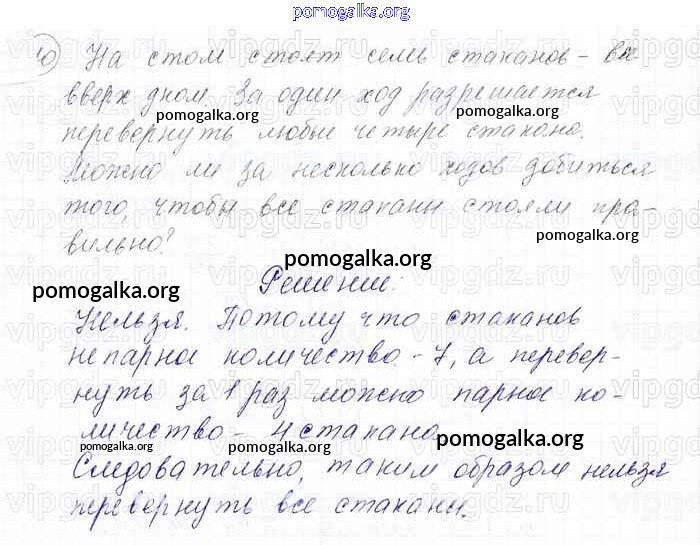 pomogalka.org
10) На стом стоят семь стаканов - все
вверх дном. За один ход разрешается
pomogalka.org pomogalka.org
перевернуть любые четыре стакана.
Можно ли за несколько ходов добиться
того, чтобы все стаканы стояли пра-
pomogalka.org
вильно?
pomogalka.org
Решение:
pomogalka.org
Нельзя. Потому что стаканов
непарное количество - 7, а перевер-
нуть за 1 раз можно парное ко-
личество - 4 стакана.
pomogalka.org pomogalka.org pomogalka.org
Следовательно, таким образом нельзя
перевернуть все стаканы.